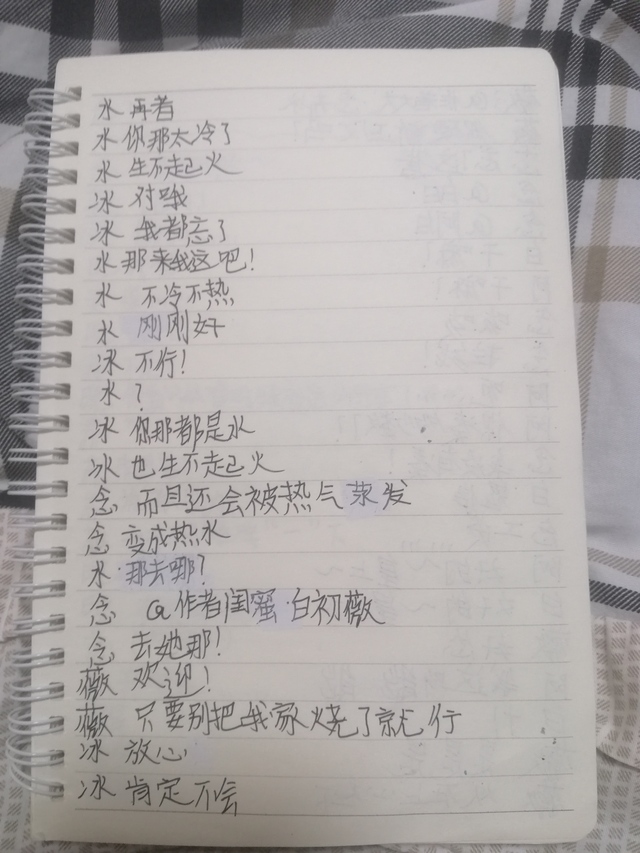 水 再者
水 你那太冷了
水 生不起火
冰 对哦
冰 我都忘了
水 那来我这吧！
水 不冷不热
水 刚刚好
冰 不行！
水 ？
冰 你那都是水
冰 也生不起火
念 而且还会被热气蒸发
念 变成热水
水 那去哪？
念 @作者闺蜜·白初薇
念 去她那！
薇 欢迎！
薇 只要别把我家烧了就行
冰 放心
冰 肯定不会